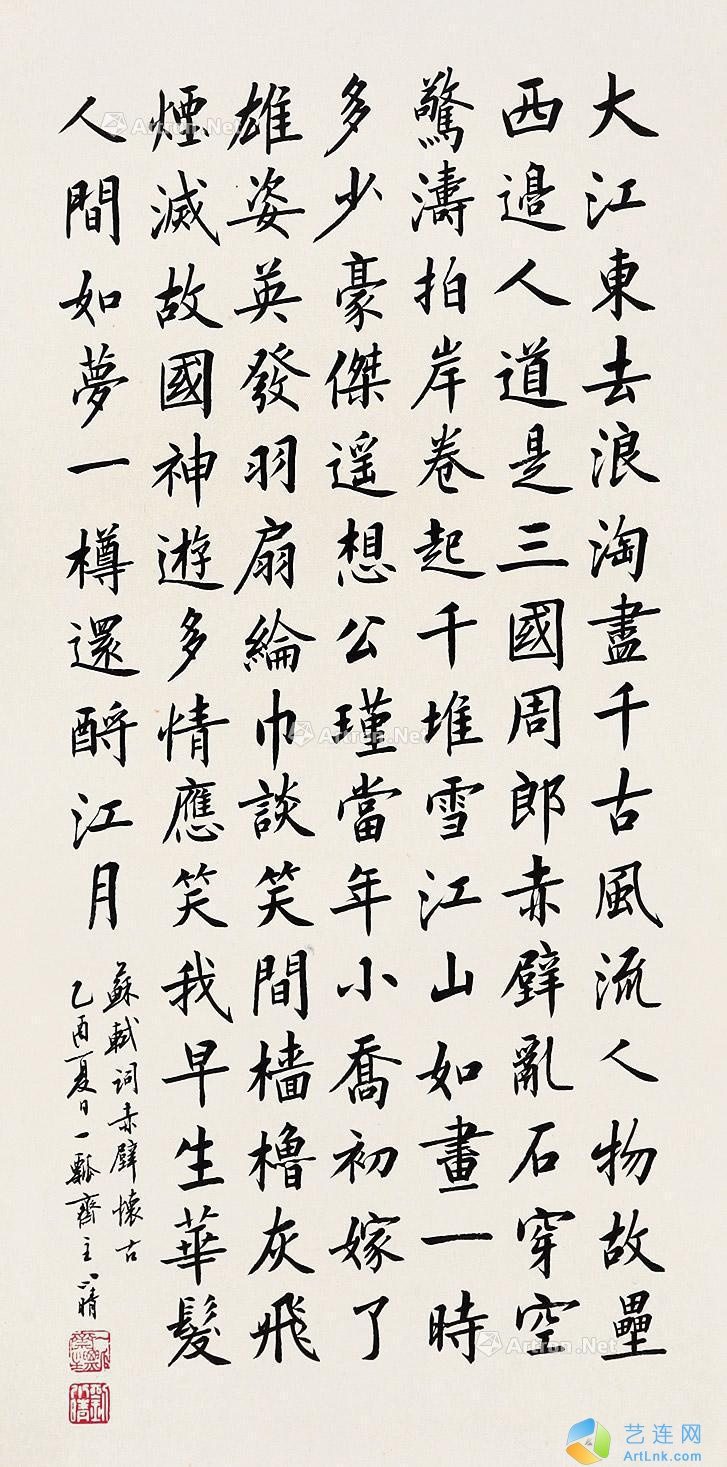 大江東去浪淘盡千古風流人物故壘
西邉人道是三國周郎赤壁亂石穿空
驚濤拍岸卷起千堆雪江山如畫一時
多少豪傑遥想公瑾當年小喬初嫁了
雄姿英發羽扇綸巾談笑間檣櫓灰飛
煙滅故國神遊多情應笑我早生華髮
人間如夢一樽還酹江月
蘇軾詞赤壁懷古
乙酉夏日一瓢齋主小晴
Artron.Net
Artron.Net
Artron.Net
Artron.Net
艺连网
ArtLnk.com